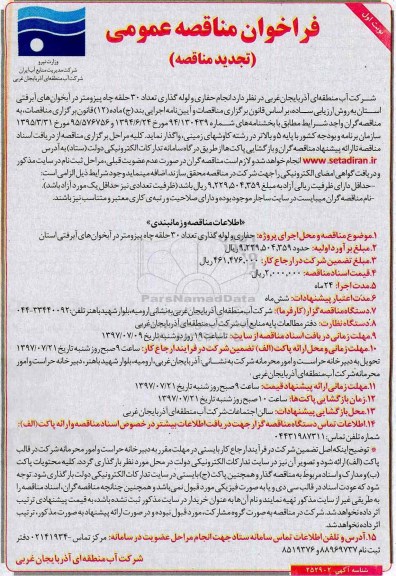 نوبت اول
فراخوان مناقصه عمومی
(تجدید مناقصه)
وزارت نیرو
شرکت مدیریت منابع آب ایران
شرکت آب منطقه‌ای آذربایجان غربی
شرکت آب منطقه‌ای آذربایجان غربی در نظر دارد انجام حفاری و لوله گذاری تعداد ۳۰ حلقه چاه پیزومتر در آبخوان‌های آبرفتی
استان به روش ارزیابی ساده، بر اساس قانون برگزاری مناقصات و آیین‌نامه اجرایی بند (ج) ماده (۱۲) قانون برگزاری مناقصات، به
مناقصه‌گران واجد شرایط مطابق با بخشنامه‌های شماره ۹۴/۱۳۰۴۳۹ مورخ ۱۳۹۴/۶/۲۴ و ۹۵/۵۷۶۷۵۶ مورخ ۱۳۹۵/۳/۳۱
سازمان برنامه و بودجه کشور با پایه ۵ و بالاتر در رشته کاوشهای زمینی، واگذار نماید. کلیه مراحل برگزاری مناقصه از دریافت اسناد
مناقصه تا ارائه پیشنهاد مناقصه‌گران و بازگشایی پاکت‌ها از طریق درگاه سامانه تدارکات الکترونیکی دولت (ستاد) به آدرس
www.setadiran.ir انجام خواهد شد و لازم است مناقصه‌گران در صورت عدم عضویت قبلی، مراحل ثبت نام در سایت مذکور
و دریافت گواهی امضای الکترونیکی را جهت شرکت در مناقصه محقق سازند. اضافه مینماید وجود شرایط ذیل الزامی است:
-حداقل دارای ظرفیت ریالی آزاد به مبلغ ۹,۲۳۹,۵۰۴,۳۵۹ ریال باشد (ظرفیت تعدادی نیز حداقل یک مورد آزاد باشد).
-نام مناقصه‌گران میبایست در سایت ساجار موجود بوده و دارای صلاحیت و رتبه‌ی کاری معتبر و متناسب نیز باشند.
«اطلاعات مناقصه و زمانبندی»
۱.موضوع مناقصه و محل اجرای پروژه: حفاری و لوله گذاری تعداد ۳۰ حلقه چاه پیزومتر در آبخوان‌های آبرفتی استان
۲.مبلغ برآورد اولیه: حدود ۹,۲۳۹,۵۰۴,۳۵۹ ریال
۳.مبلغ تضمین شرکت در ارجاع کار: ۴۶۱,۴۷۶,۰۰۰ ریال
۴.قیمت اسناد مناقصه: ۲,۰۰۰,۰۰۰ ریال
۵.مدت اجرا: ۲۴ ماه
۶.مدت اعتبار پیشنهادات: شش ماه
۷.دستگاه مناقصه گزار (کارفرما): شرکت آب منطقه‌ای آذربایجان غربی به نشانی: ارومیه، بلوار شهید باهنر تلفن: ۳۳۴۴۰۰۹۲-۰۴۴
۸.دستگاه نظارت: دفتر مطالعات پایه منابع آب شرکت آب منطقه‌ای آذربایجان غربی
۹.مهلت زمانی دریافت اسناد مناقصه از سایت: تا ساعت ۱۹ روز دوشنبه تاریخ ۱۳۹۷/۰۷/۰۹
۱۰.مهلت زمانی و محل ارائه پاکت (الف) تضمین شرکت در فرایند ارجاع کار: ساعت ۹ صبح روز شنبه تاریخ ۱۳۹۷/۰۷/۲۱
تحویل به دبیرخانه حراست و امور محرمانه شرکت به نشانی: آذربایجان غربی، ارومیه، بلوار شهید باهنر، دبیرخانه حراست و امور
محرمانه شرکت آب منطقه‌ای آذربایجان غربی
۱۱.مهلت زمانی ارائه پیشنهاد قیمت: ساعت ۹ صبح روز شنبه تاریخ ۱۳۹۷/۰۷/۲۱
۱۲.زمان بازگشایی پاکت‌ها: ساعت ۱۰ صبح روز شنبه تاریخ ۱۳۹۷/۰۷/۲۱
۱۳.محل بازگشایی پیشنهادات: سالن اجتماعات شرکت آب منطقه‌ای آذربایجان غربی
۱۴.اطلاعات تماس دستگاه مناقصه گزار جهت دریافت اطلاعات بیشتر در خصوص اسناد مناقصه و ارائه پاکت (الف):
شماره تلفن تماس: ۰۴۴۳۱۹۸۷۳۱۱
* توضیح اینکه اصل تضمین شرکت در فرآیند ارجاع کار بایستی در مهلت مقرر به دبیرخانه حراست و امور محرمانه شرکت در قالب
پاکت (الف) ارائه شود و تصویر آن نیز در سایت تدارکات الکترونیکی دولت در محل مورد نظر بارگذاری گردد. کلیه محتویات پاکت
(ب) و مدارک و اسناد مربوط به مناقصه گذار و همچنین پاکت (ج) بایستی در سایت تدارکات الکترونیکی دولت بارگذاری شود. توجه
شود که عودت اسناد در قالب سی دی و یا به صورت فیزیکی مورد قبول نمی‌باشد و همچنین چنانچه مناقصه گران، اسناد مناقصه را
به طریقی غیر از سایت مذکور تهیه نمایند و نام آن‌ها به عنوان خریدار در سایت مذکور ثبت نشده باشد، به قیمت پیشنهادی ترتیب
اثر داده نخواهد شد. شرکت در مناقصه به صورت گروه مشارکت، مورد قبول نبوده و در صورت ارائه پیشنهاد به صورت مذکور، ترتیب
اثر داده نخواهد شد.
۱۵.آدرس و تلفن اطلاعات تماس سامانه ستاد جهت انجام مراحل عضویت در سامانه: مرکز تماس ۴۱۹۳۴-۰۲۱ دفتر
ثبت نام ۸۸۹۶۹۷۳۷ و ۸۵۱۹۳۷۶۸
شرکت آب منطقه‌ای آذربایجان غربی
شناسه آگهی: ۲۵۲۹۰۲
ParsNamadData